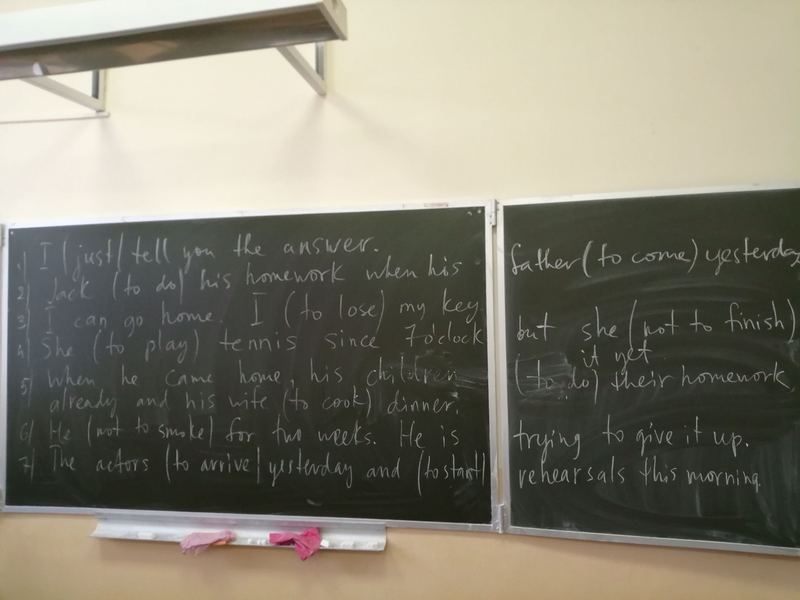 1) I (just) tell you the answer.
2) Jack (to do) his homework when his father (to come) yesterday
3) I can go home. I (to lose) my key
4) She (to play) tennis since 7 o'clock but she (not to finish)
it yet
5) When he came home, his children (to do) their homework
already and his wife (to cook) dinner.
6) He (not to smoke) for two weeks. He is trying to give it up.
7) The actors (to arrive) yesterday and (to start) rehearsals this morning.